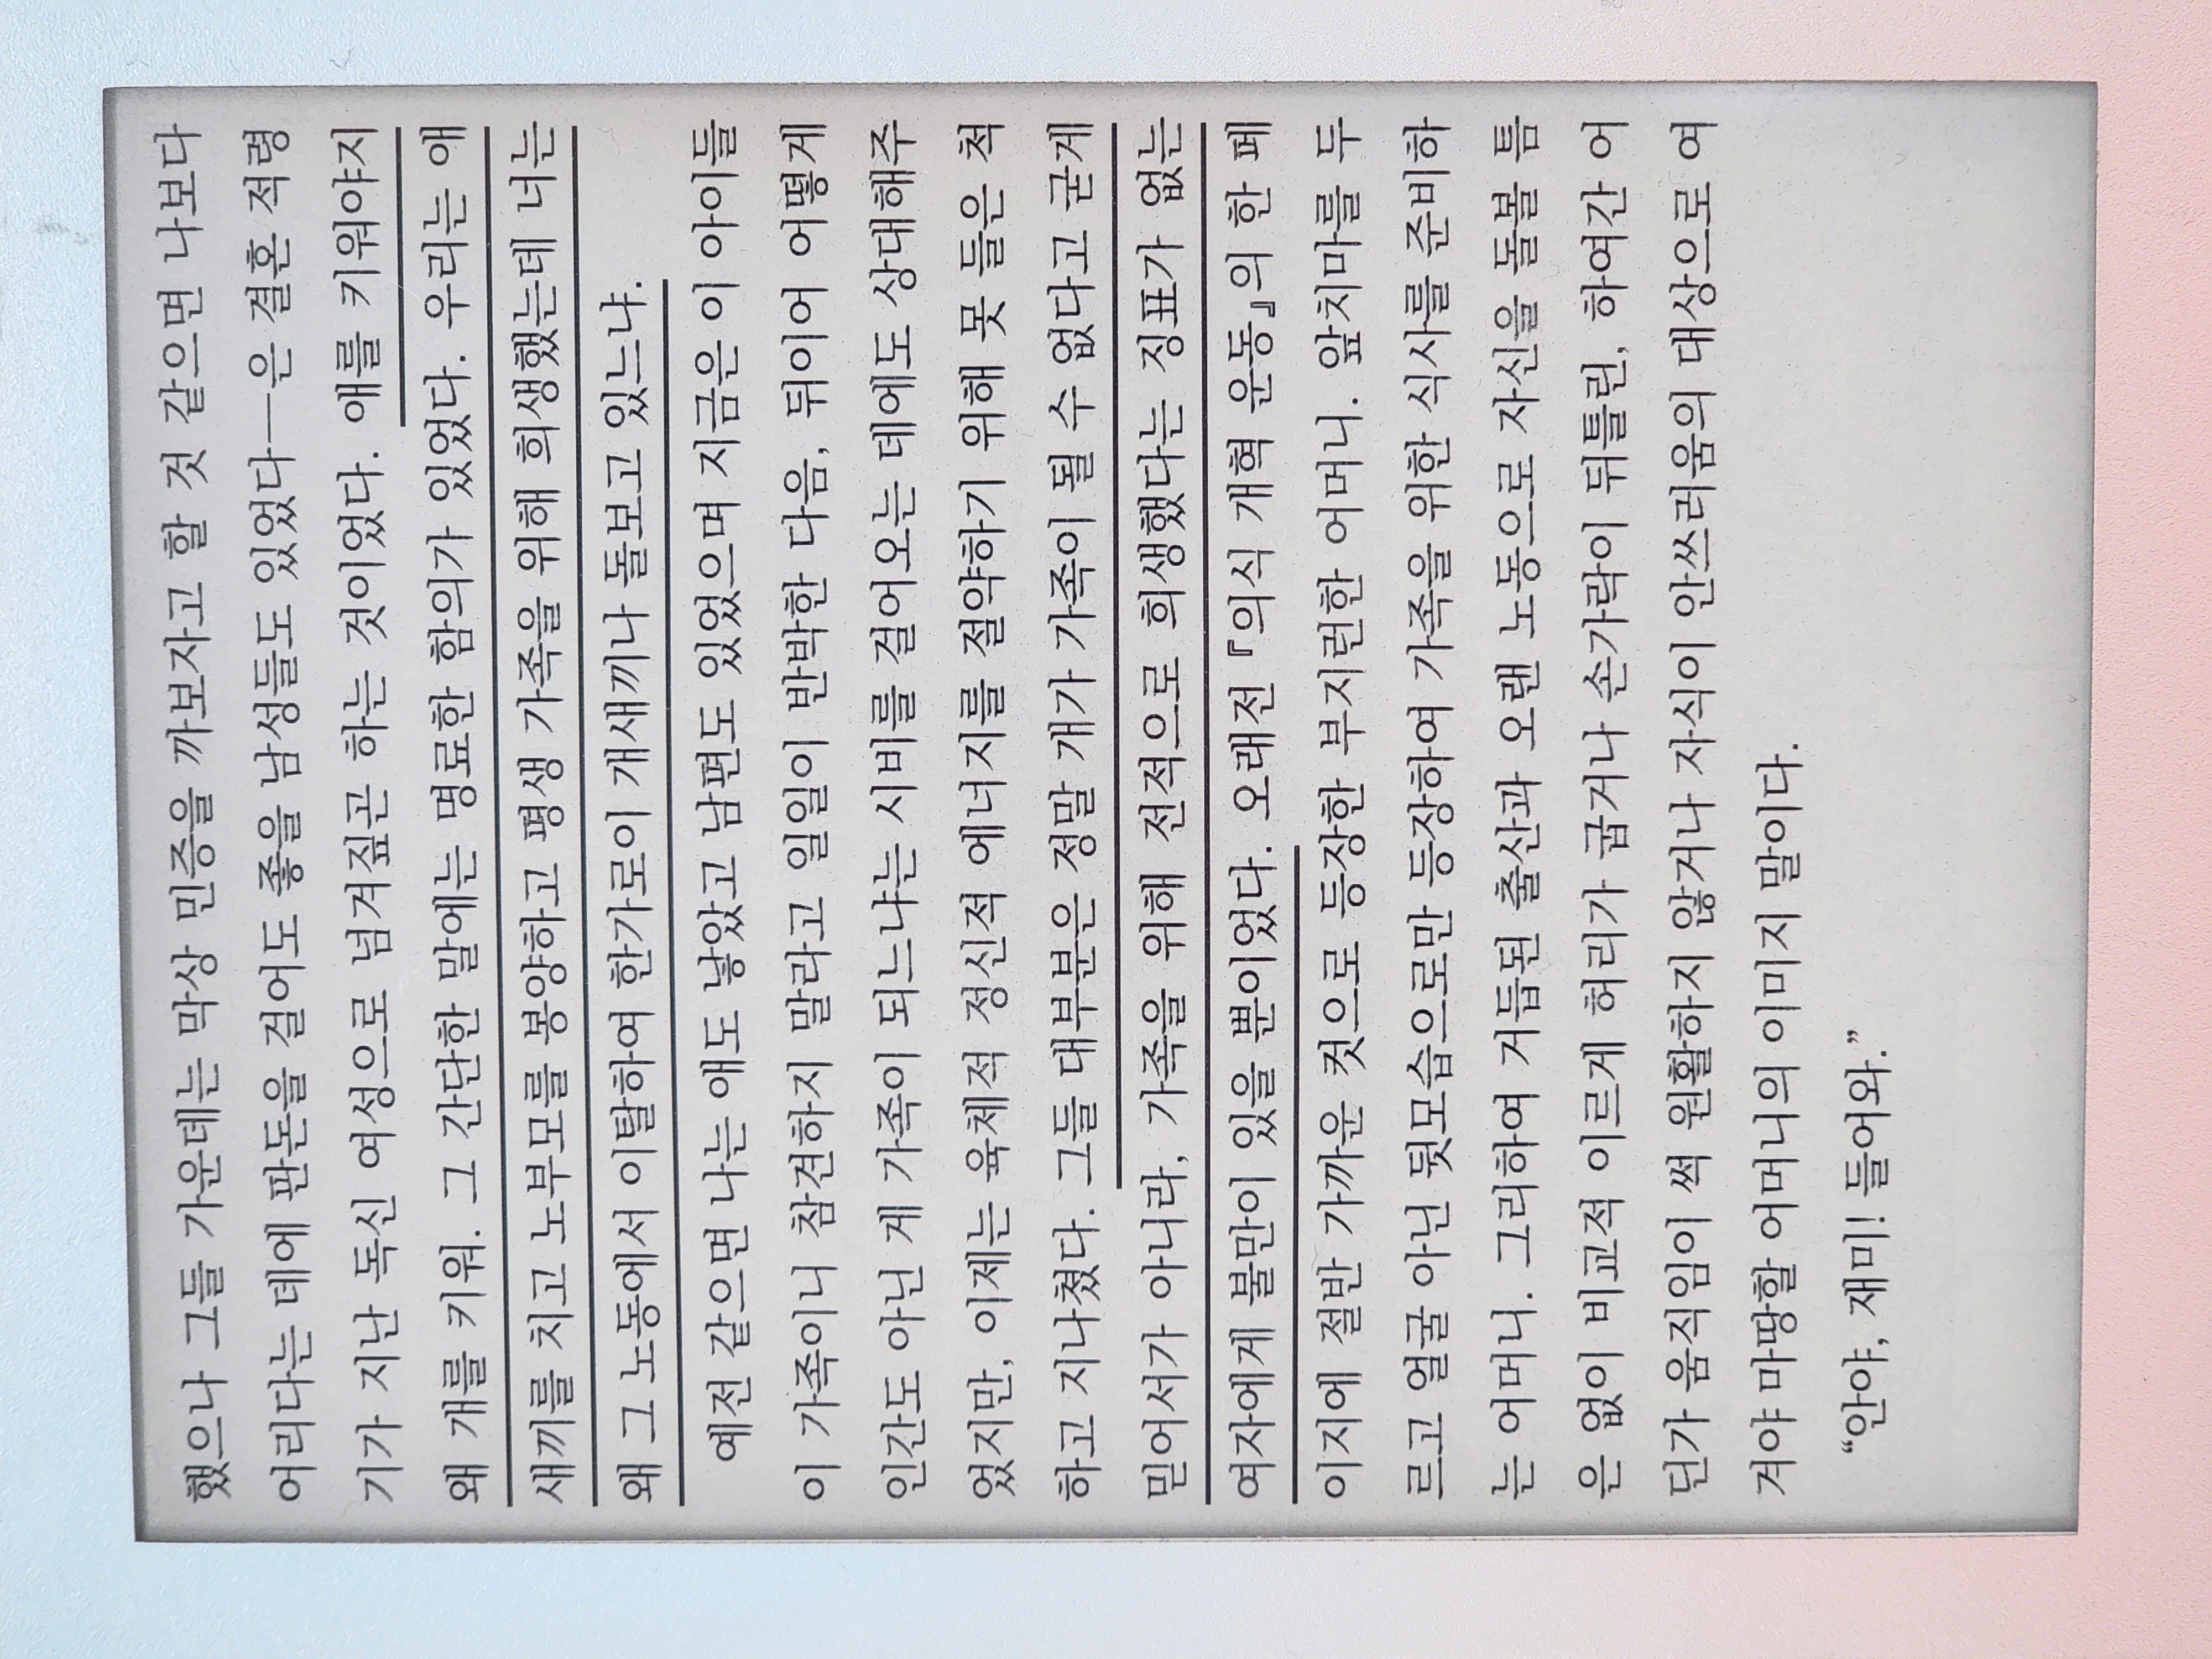 했으나 그들 가운데는 막상 민증을 까보자고 할 것 같으면 나보다
어리다는 데에 판돈을 걸어도 좋을 남성들도 있었다—은 결혼 적령
기가 지난 독신 여성으로 넘겨짚곤 하는 것이었다. 애를 키워야지
왜 개를 키워. 그 간단한 말에는 명료한 함의가 있었다. 우리는 애
새끼를 치고 노부모를 봉양하고 평생 가족을 위해 희생했는데 너는
왜 그 노동에서 이탈하여 한가로이 개새끼나 돌보고 있느냐.
예전 같으면 나는 애도 낳았고 남편도 있었으며 지금은 이 아이들
이 가족이니 참견하지 말라고 일일이 반박한 다음, 뒤이어 어떻게
인간도 아닌 게 가족이 되느냐는 시비를 걸어오는 데에도 상대해주
었지만, 이제는 육체적 정신적 에너지를 절약하기 위해 못 들은 척
하고 지나쳤다. 그들 대부분은 정말 개가 가족이 될 수 없다고 굳게
믿어서가 아니라, 가족을 위해 전적으로 희생했다는 징표가 없는
여자에게 불만이 있을 뿐이었다. 오래전 『의식 개혁 운동』의 한 페
이지에 절반 가까운 컷으로 등장한 부지런한 어머니. 앞치마를 두
르고 얼굴 아닌 뒷모습으로만 등장하여 가족을 위한 식사를 준비하
는 어머니. 그리하여 거듭된 출산과 오랜 노동으로 자신을 돌볼 틈
은 없이 비교적 이르게 허리가 굽거나 손가락이 뒤틀린, 하여간 어
딘가 움직임이 썩 원활하지 않거나 자식이 안쓰러움의 대상으로 여
겨야 마땅할 어머니의 이미지 말이다.
“안야, 재미! 들어와.”